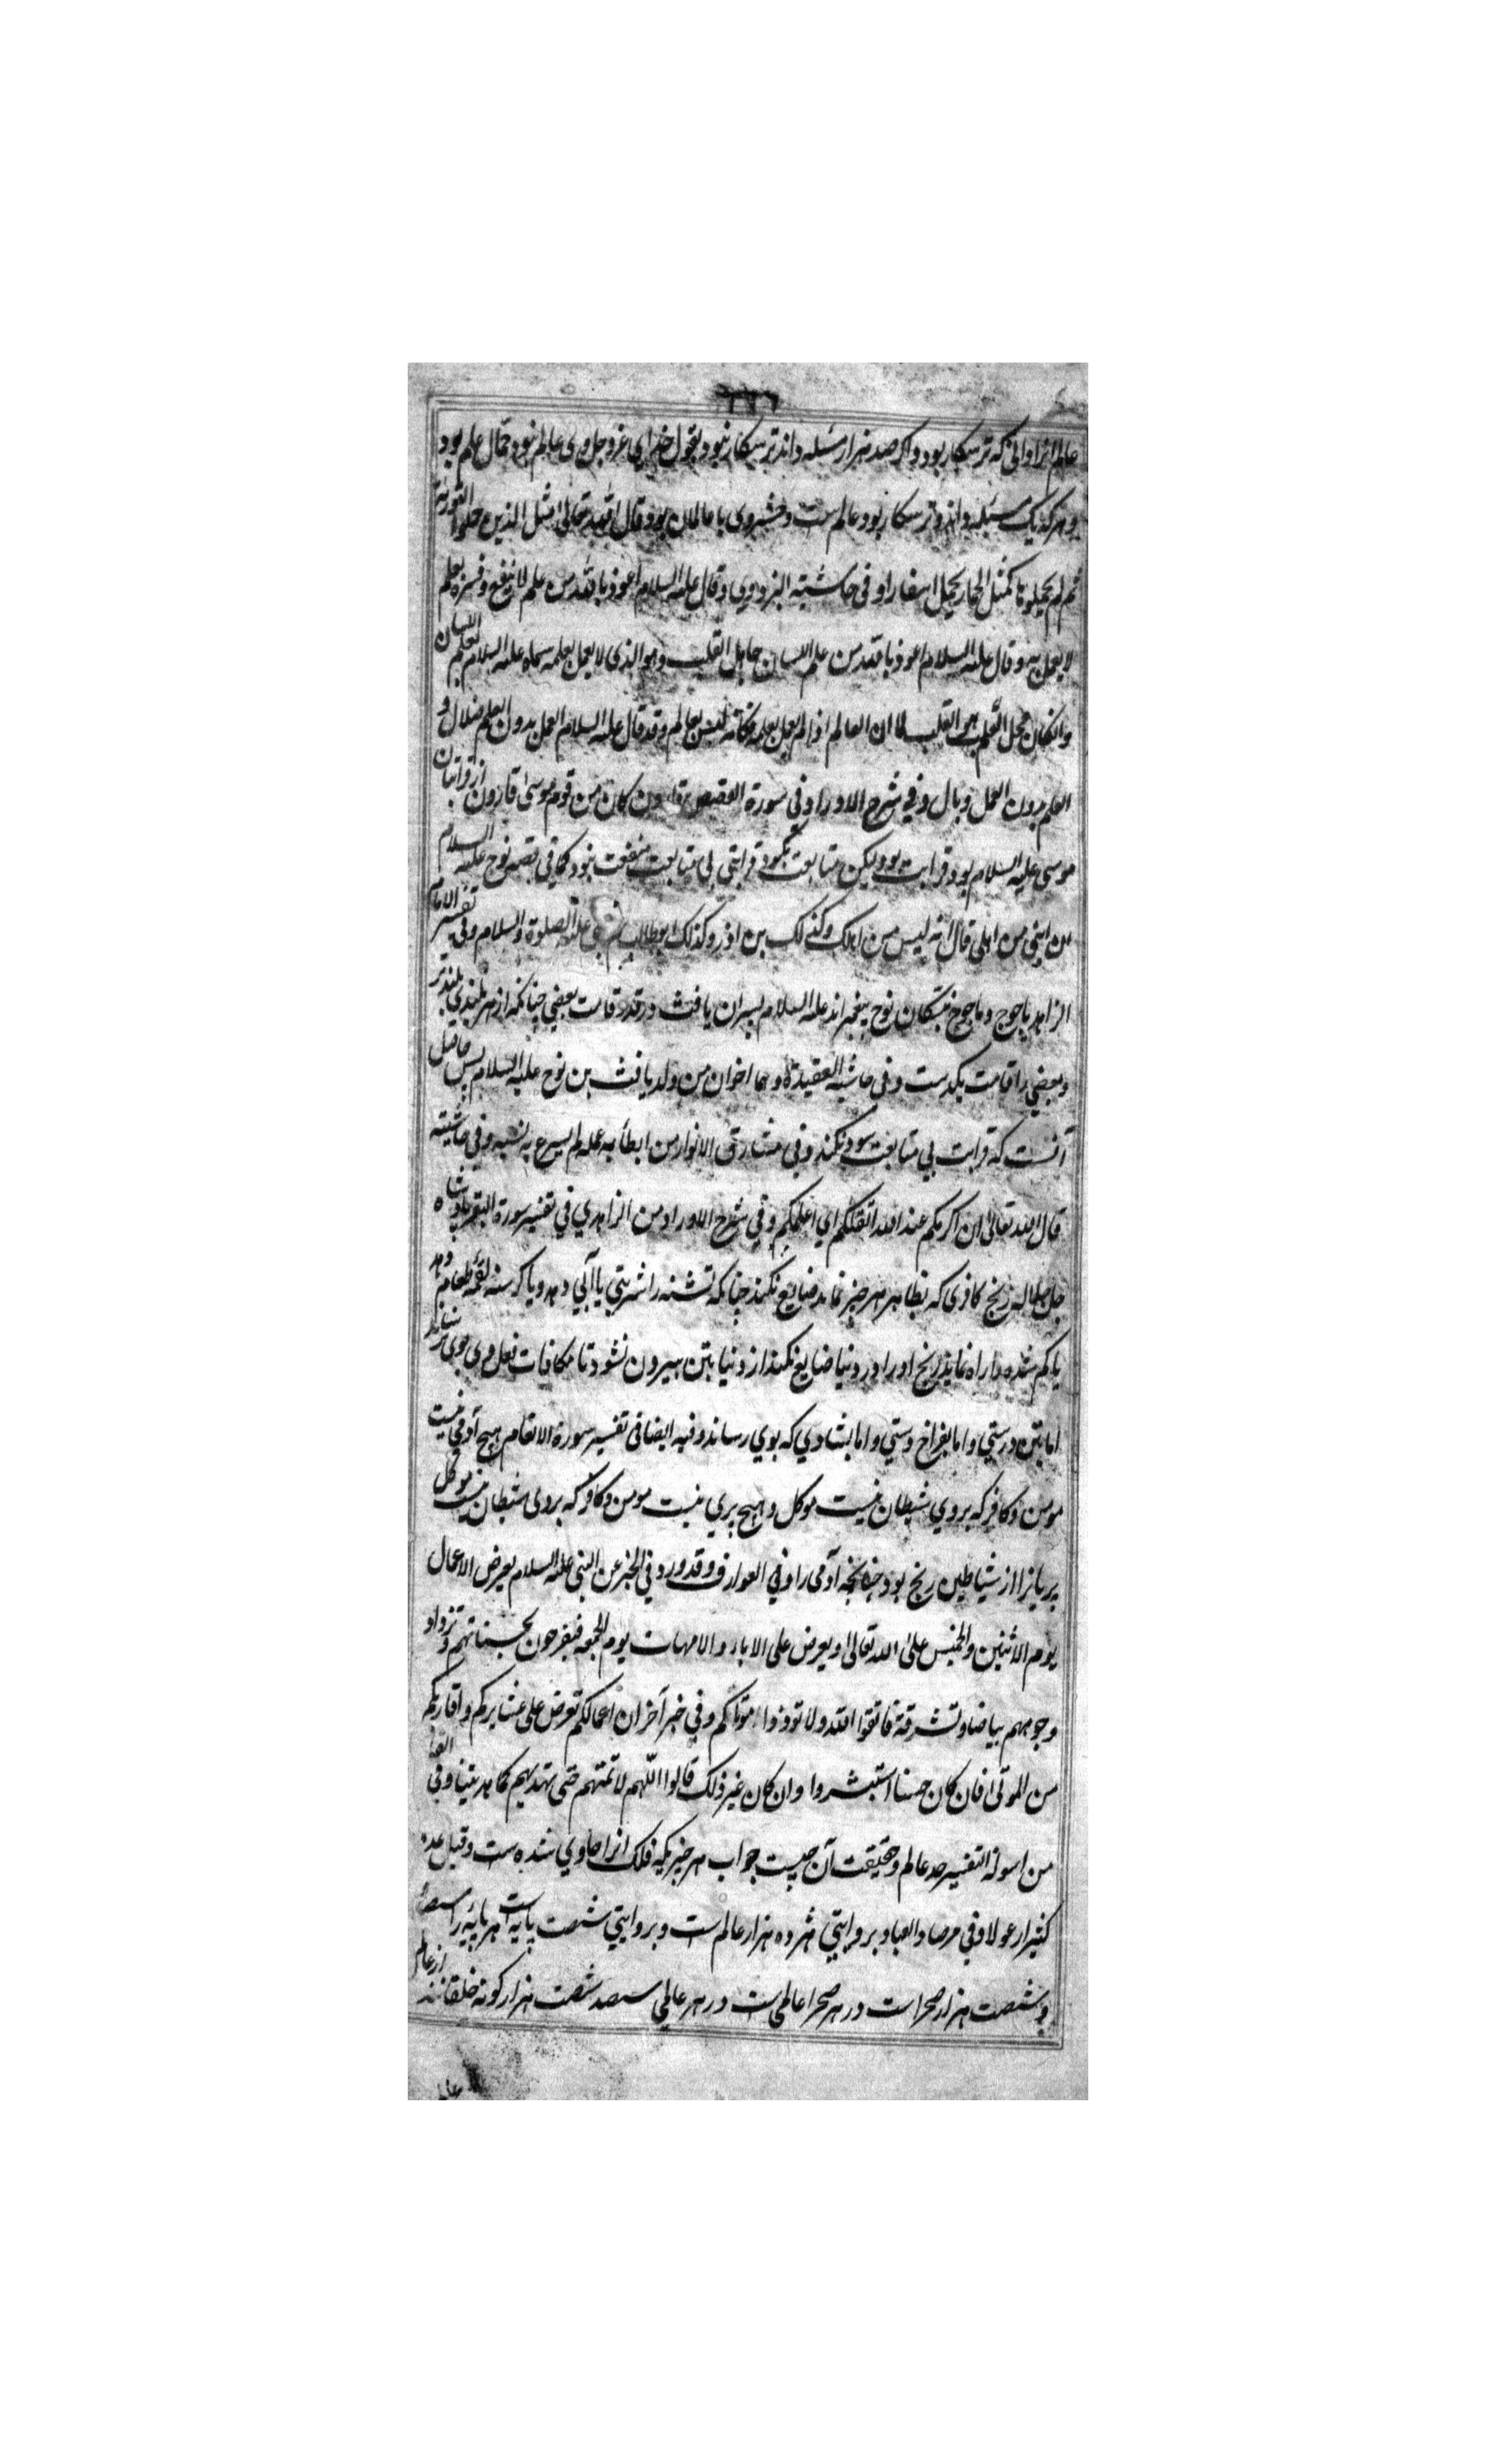 عالم انرا دانی که ترسکار بود و اکر صد هزار مسئله داند ترسکار نبود بقول خدای عزوجل وی عالم نبود حمال علم بود
و هرکه یک مسئله داند و ترسکار بود عالم ست و حشر وی با عالمان بود قال الله تعالی مثل الذین حملوا التوریة
ثم لم یحملوها کمثل الحمار یحمل اسفارا و فی حاشیة البزدوی و قال علیه السلام اعوذ بالله من علم لا ینفع و فسره بعلم
لا یعمل به و قال علیه السلام اعوذ بالله من علم اللسان جاهل القلب و هو الذی لا یعمل بعلمه سماه علیه السلام بعلم اللسان
و انکان محل العلم هو القلب لما ان العالم اذا لم یعمل بعلمه فکانه لیس بعالم و قد قال علیه السلام العمل بدون العلم ضلال و
العلم بدون العمل وبال و فی شرح الاوراد فی سورة القصص ان قارون کان من قوم موسی قارون از قرابتان
موسی علیه السلام بود قرابت بود ولیکن متابعت نکرد قرابتی بی متابعت منفعت نبود کما فی قصه نوح علیه السلام
ان ابنی من اهلی قال انه لیس من اهلک و کذلک بن اذر و کذلک ابوطالب علیه الصلوة والسلام و فی تفسیر الامام
الزاهد یاجوج و ماجوج نبتکان نوح پیغمبراند علیه السلام پسران یافث در قد و قامت بعضی چنانکه از هر بلندی بلندتر
و بعضی را قامت یکدست و فی حاشیة العقیدة و هما اخوان من ولد یافث بن نوح علیه السلام پس حاصل
آنست که قرابت بی متابعت سود نکند و فی مشارق الانوار من ابطأ به عمله لم یسرع به نسبه و فی حاشیته
قال الله تعالی ان اکرمکم عند الله اتقیکم ای اعلمکم و فی شرح الاوراد من الزاهدی فی تفسیر سورة البقره پادشاه
جل جلاله رنج کافری که بظاهر هر خیر نماید ضایع نکند چنانکه تشنه را شربتی یا آبی دهد و یا کرسنه لقمه طعام دهد
یا کم شده را راه نماید رنج او را در دنیا ضایع نکند از دنیا بتن بیرون نشود تا مکافات فعل وی بوی نرساند
اما بتن درستی و اما بفراخ دستی و اما بشادی که بوی رساند و فیه ایضا فی تفسیر سورة الانعام هیچ آدمی نیست
مومن و کافر که بروی شیطان نیست موکل و هیچ پری نیست مومن و کافر که بروی شیطان نیست موکل
پریانرا از شیاطین رنج بود چنانکه آدمی را و فی العوارف و قد ورد فی الخبر عن النبی علیه السلام یعرض الاعمال
یوم الاثنین و الخمیس علی الله تعالی و یعرض علی الاباء والامهات یوم الجمعه فیفرحون بحسناتهم و تزداد
وجوههم بیاضا و تشرقة فاتقوا الله ولا توذوا موتاکم و فی خبر آخر ان اعمالکم تعرض علی عشایرکم و اقاربکم
من الموتی فان کان حسنا استبشروا و ان کان غیر ذلک قالوا اللهم لا تمتهم حتی تهدیهم کما هدیتنا و فی
من اسولة التفسیر حد عالم و حقیقت آن چیست جواب هر چیزیکه فلک انرا حاوی شده ست و قیل
و فی مرصاد العباد بروایتی هژده هزار عالم ست و بروایتی شصت پایه است هر پایه را سیصد
و شصت هزار صحراست در هر صحرا عالمی ست در هر عالمی سیصد شصت هزار کونه خلقانند از عالم